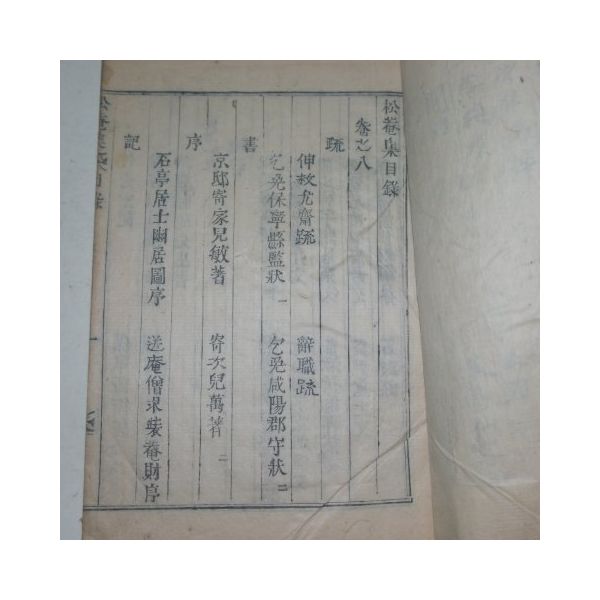 松菴集目錄
卷之八
疏
伸救尤齋疏 辭職疏
乞免保寧縣監狀 一 乞免咸陽郡守狀 二
書
京邸寄家兒敏著 寄次兒萬著 二
序
石亭居士幽居圖序 送庵僧求裝菴財序
記
松菴集目錄